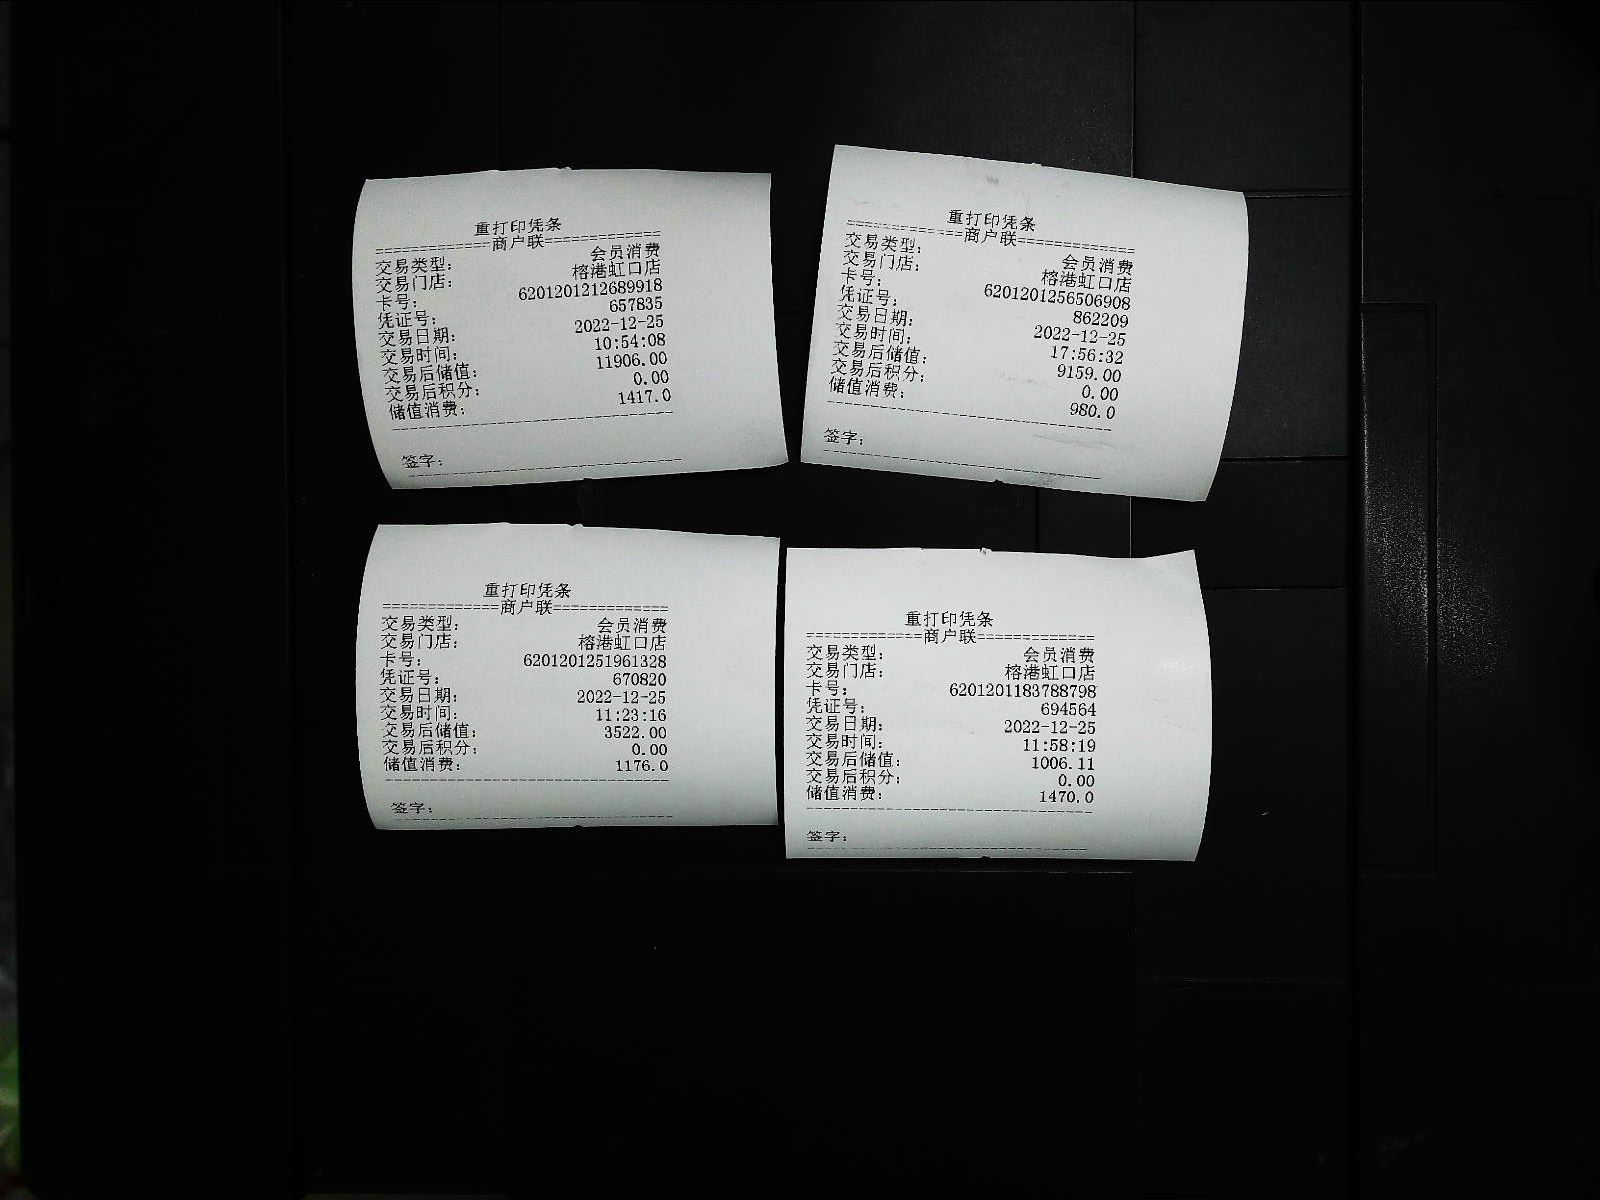 重打印凭条
=============商户联=============
交易类型: 会员消费
交易门店: 榕港虹口店
卡号: 6201201212689918
凭证号: 657835
交易日期: 2022-12-25
交易时间: 10:54:08
交易后储值: 11906.00
交易后积分: 0.00
储值消费: 1417.0
签字:
重打印凭条
=============商户联=============
交易类型: 会员消费
交易门店: 榕港虹口店
卡号: 6201201256506908
凭证号: 862209
交易日期: 2022-12-25
交易时间: 17:56:32
交易后储值: 9159.00
交易后积分: 0.00
储值消费: 980.0
签字:
重打印凭条
=============商户联=============
交易类型: 会员消费
交易门店: 榕港虹口店
卡号: 6201201251961328
凭证号: 670820
交易日期: 2022-12-25
交易时间: 11:23:16
交易后储值: 3522.00
交易后积分: 0.00
储值消费: 1176.0
签字:
重打印凭条
=============商户联=============
交易类型: 会员消费
交易门店: 榕港虹口店
卡号: 6201201183788798
凭证号: 694564
交易日期: 2022-12-25
交易时间: 11:58:19
交易后储值: 1006.11
交易后积分: 0.00
储值消费: 1470.0
签字: